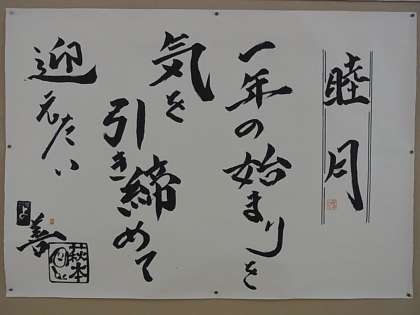 睦月
一年の始まりを
気を
引き締めて
迎えたい
善
萩本